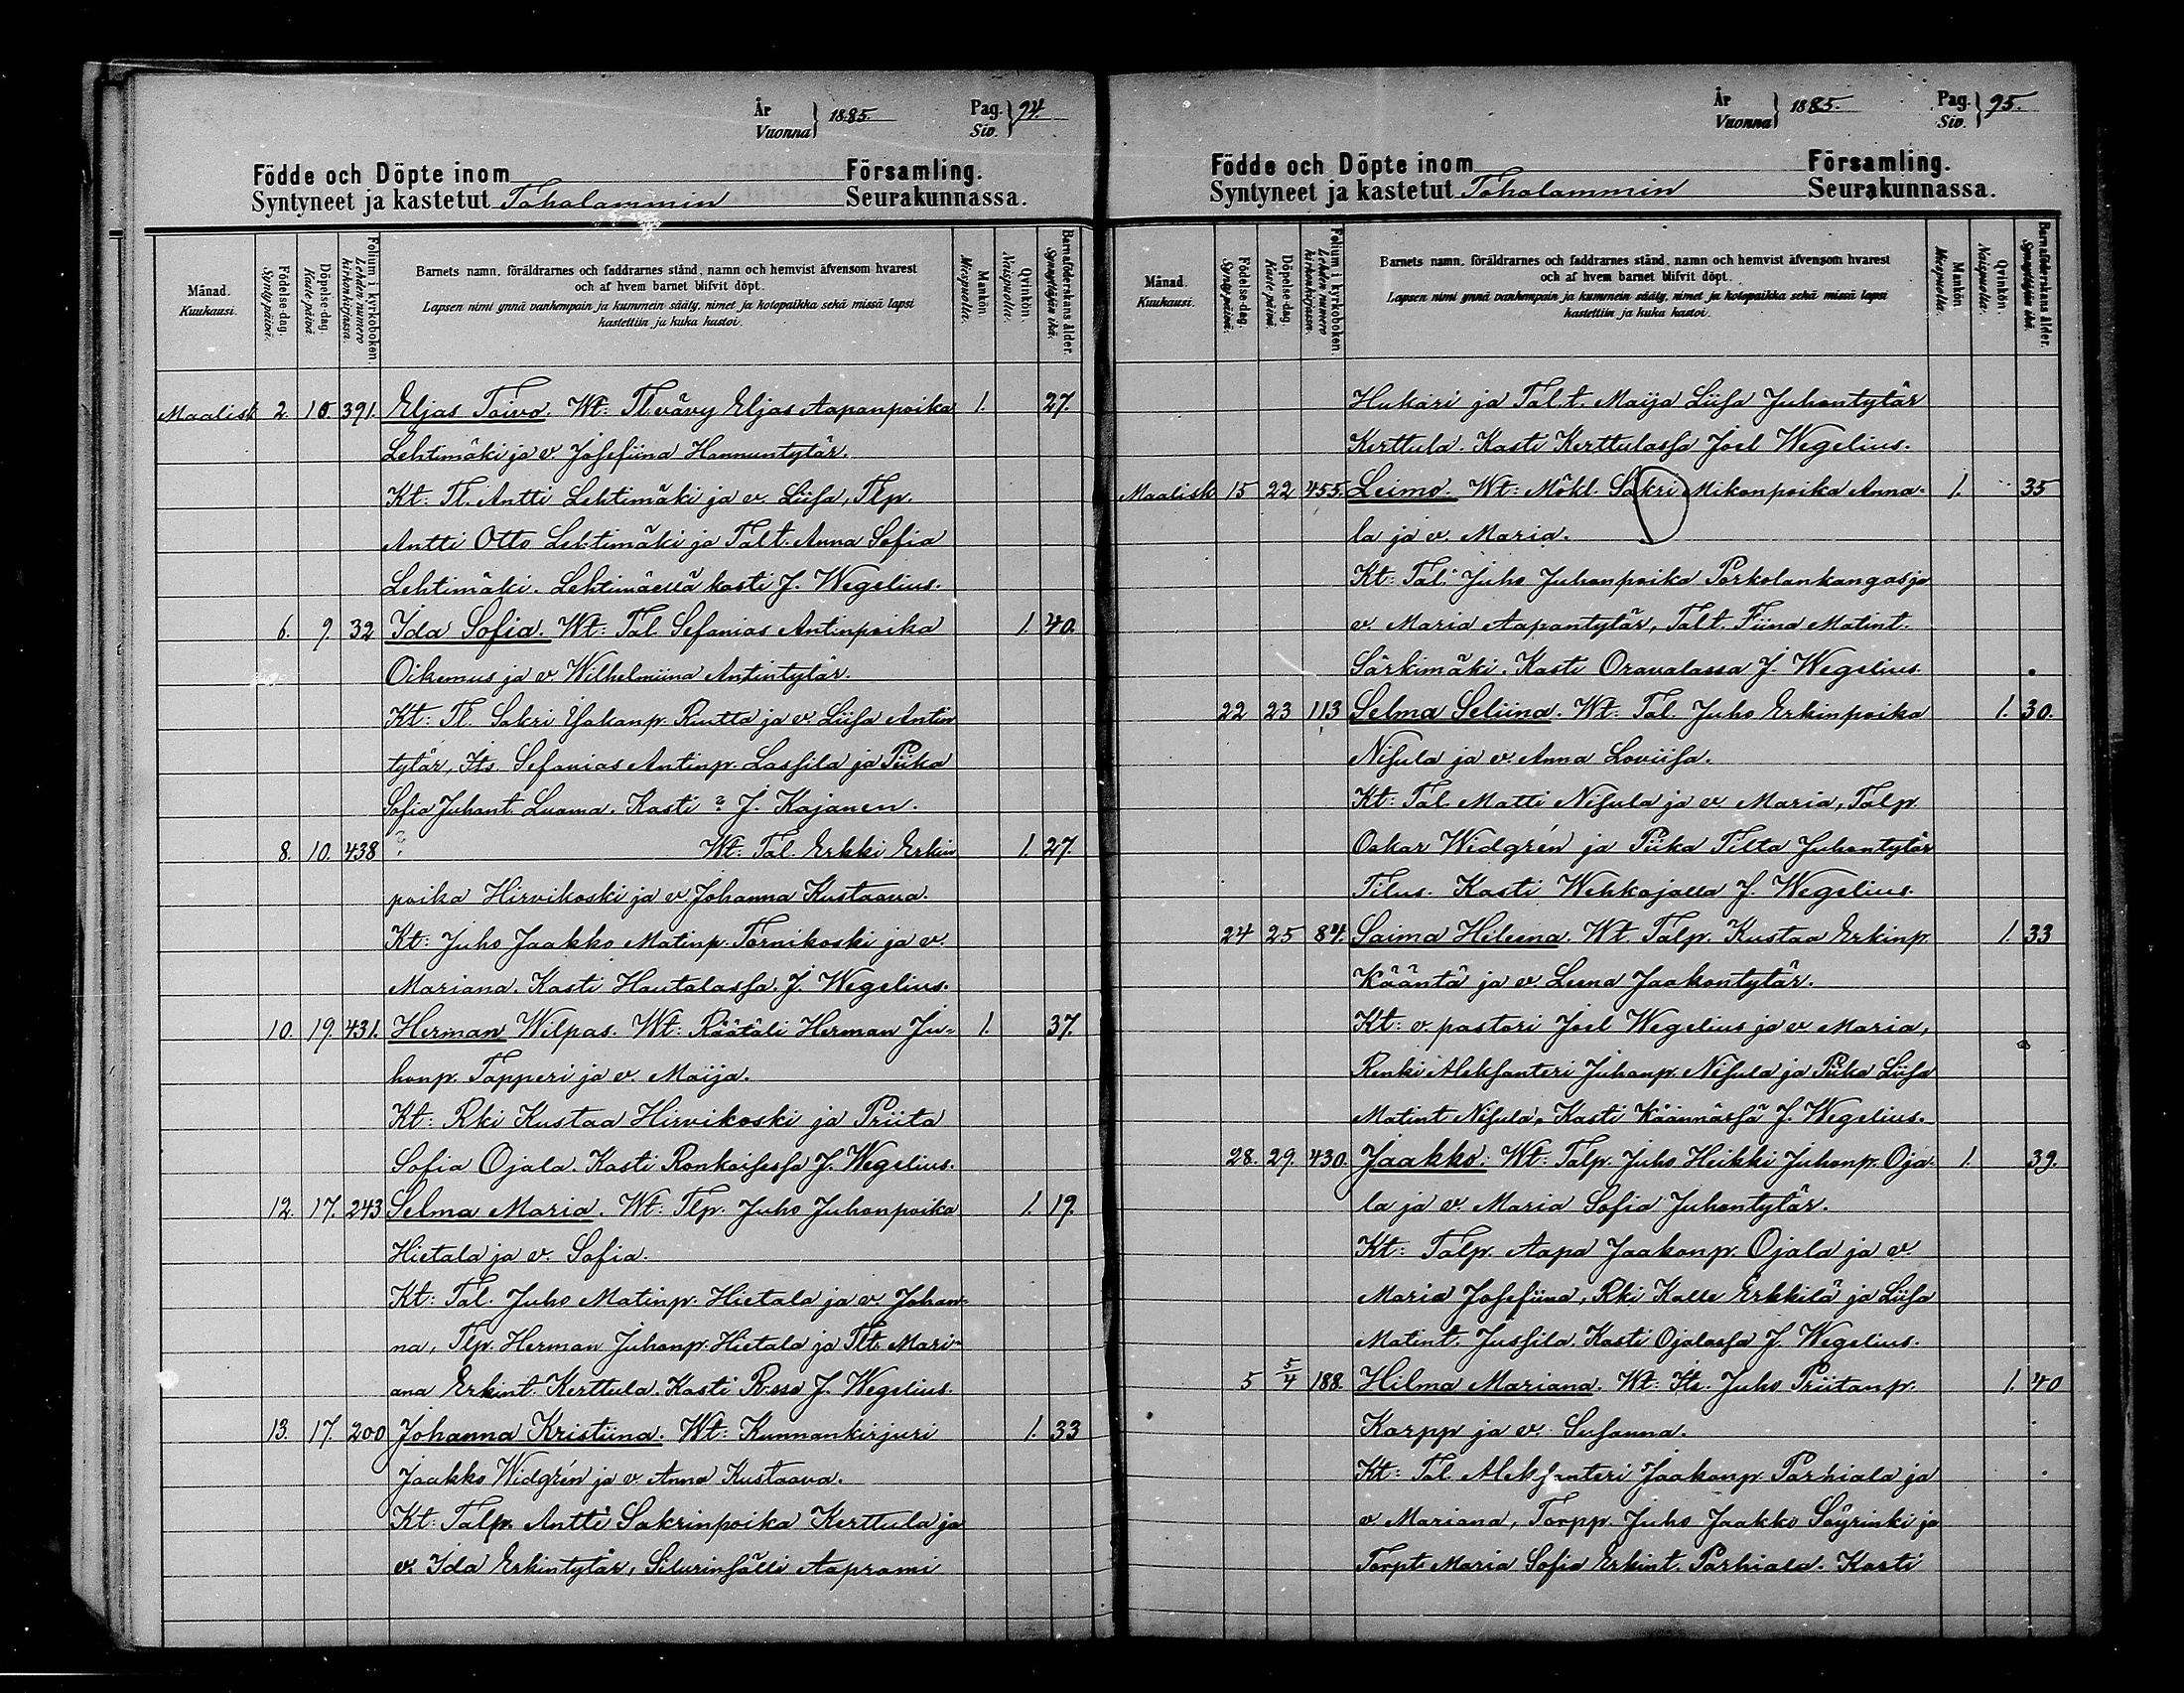 År
Vuonna } 1885. Pag.
Siv. } 94.
Födde och Döpte inom Församling.
Syntyneet ja kastetut Toholammin Seurakunnassa.
Månad.
Kuukausi.
Födelse-dag.
Syntypäivä.
Döpelse-dag.
Kastepäivä.
Folium i kyrkoboken.
Lehden numero
kirkonkirjassa.
Barnets namn, föräldrarnes och faddrarnes stånd, namn och hemvist äfvensom hvarest
och af hvem barnet blifvit döpt.
Lapsen nimi ynnä vanhempain ja kummein sääty, nimet ja kotopaikka sekä missä lapsi
kastettiin ja kuka kastoi.
Mankön.
Miespuolia.
Qvinkön.
Naispuolia.
Barnaföderskans ålder.
Synnyttäjän ikä.
Maalisk 2. 10. 391. Eljas Toivo. Wt: Tl.vävy Eljas Aapanpoika 1. 27.
Lehtimäki ja v. Josefiina Hannuntytär.
Kt: Tl. Antti Lehtimäki ja v. Liisa, Tlp.
Antti Otto Lehtimäki ja Talt. Anna Sofia
Lehtimäki. Lehtimäellä kasti J. Wegelius.
6. 9. 32 Ida Sofia. Wt: Tal. Sefanias Antinpoika 1. 40.
Oikemus ja v. Wilhelmiina Antintytär.
Kt: Tl. Sakri Isakanp. Ruutta ja v. Liisa Antin
tytär, Its. Sefanias Antinp. Lassila ja Piika
Sofia Juhant. Luoma. Kasti ? J. Kajanen.
8. 10. 438 ? Wt: Tal. Erkki Erkin 1. 27.
poika Hirvikoski ja v. Johanna Kustaava.
Kt: Juho Jaakko Matinp. Tornikoski ja v.
Mariana. Kasti Hautalassa. J. Wegelius.
10. 19. 431. Herman Wilpas. Wt: Räätäli Herman Ju= 1. 37.
honp. Tapperi ja v. Maija.
Kt: Rki Kustaa Hirvikoski ja Priita
Sofia Ojala. Kasti Ronkaisessa J. Wegelius.
12. 17. 243 Selma Maria. Wt: Tlp. Juho Juhonpoika 1. 19.
Hietala ja v. Sofia.
Kt: Tal. Juho Matinp. Hietala ja v. Johan=
na, Tlp. Herman Juhonp. Hietala ja Tlt. Mari=
ana Erkint. Kerttula. Kasti R:ssa J. Wegelius.
13. 17. 200 Johanna Kristiina. Wt: Kunnankirjuri 1. 33
Jaakko Widgrén ja v. Anna Kustaava.
Kt: Talp. Antti Sakrinpoika Kerttula ja
v. Ida Erkintytär, Silurinsälli Aaprami
År
Vuonna } 1885. Pag.
Siv. } 95.
Födde och Döpte inom Församling.
Syntyneet ja kastetut Toholammin Seurakunnassa.
Månad.
Kuukausi.
Födelse-dag.
Syntypäivä.
Döpelse-dag.
Kastepäivä.
Folium i kyrkoboken.
Lehden numero
kirkonkirjassa.
Barnets namn, föräldrarnes och faddrarnes stånd, namn och hemvist äfvensom hvarest
och af hvem barnet blifvit döpt.
Lapsen nimi ynnä vanhempain ja kummein sääty, nimet ja kotopaikka sekä missä lapsi
kastettiin ja kuka kastoi.
Mankön.
Miespuolia.
Qvinkön.
Naispuolia.
Barnaföderskans ålder.
Synnyttäjän ikä.
Hukari ja Tal.t. Maija Liisa Juhontytär
Kerttula. Kasti Kerttulassa Joel Wegelius.
Maalisk 15 22 455. Leimo. Wt: Mökl. Sakri Mikonpoika Anna= 1. 35
la ja v. Maria.
Kt: Tal. Juho Juhonpoika Porkolankangas ja
v. Maria Aapantytär, Talt. Fiina Matint.
Särkimäki. Kasti Oravalassa J. Wegelius.
22 23 113 Selma Seliina. Wt: Tal. Juho Erkinpoika 1. 30.
Nisula ja v. Anna Loviisa.
Kt: Tal. Matti Nisula ja v. Maria, Talp.
Oskar Widgrén ja Piika Tilta Juhontytär
Tilus. Kasti Wehkajalla J. Wegelius.
24 25 84. Saima Hileena. Wt. Talp. Kustaa Erkinp. 1. 33
Kääntä ja v. Leena Jaakontytär.
Kt: v. pastori Joel Wegelius ja v. Maria,
Renki Aleksanteri Juhonp. Nisula ja Piika Liisa
Matint Nisula, Kasti Käännässä J. Wegelius.
28. 29. 430. Jaakko: Wt: Talp. Juho Heikki Juhonp. Oja= 1. 39.
la ja v. Maria Sofia Juhontytär.
Kt: Talp. Aapa Jaakonp. Ojala ja v.
Maria Josefiina, Rki Kalle Erkkilä ja Liisa
Matint. Jussila. Kasti Ojalassa J. Wegelius.
5 5/4 188. Hilma Mariana. Wt: Its. Juho Priitanp. 1. 40
Karpp ja v. Susanna.
Kt: Tal. Aleksanteri Jaakonp. Parhiala ja
v. Mariana, Torpp. Juho Jaakko Säyrinki ja
Torpt. Maria Sofia Erkint. Parhiala. Kasti